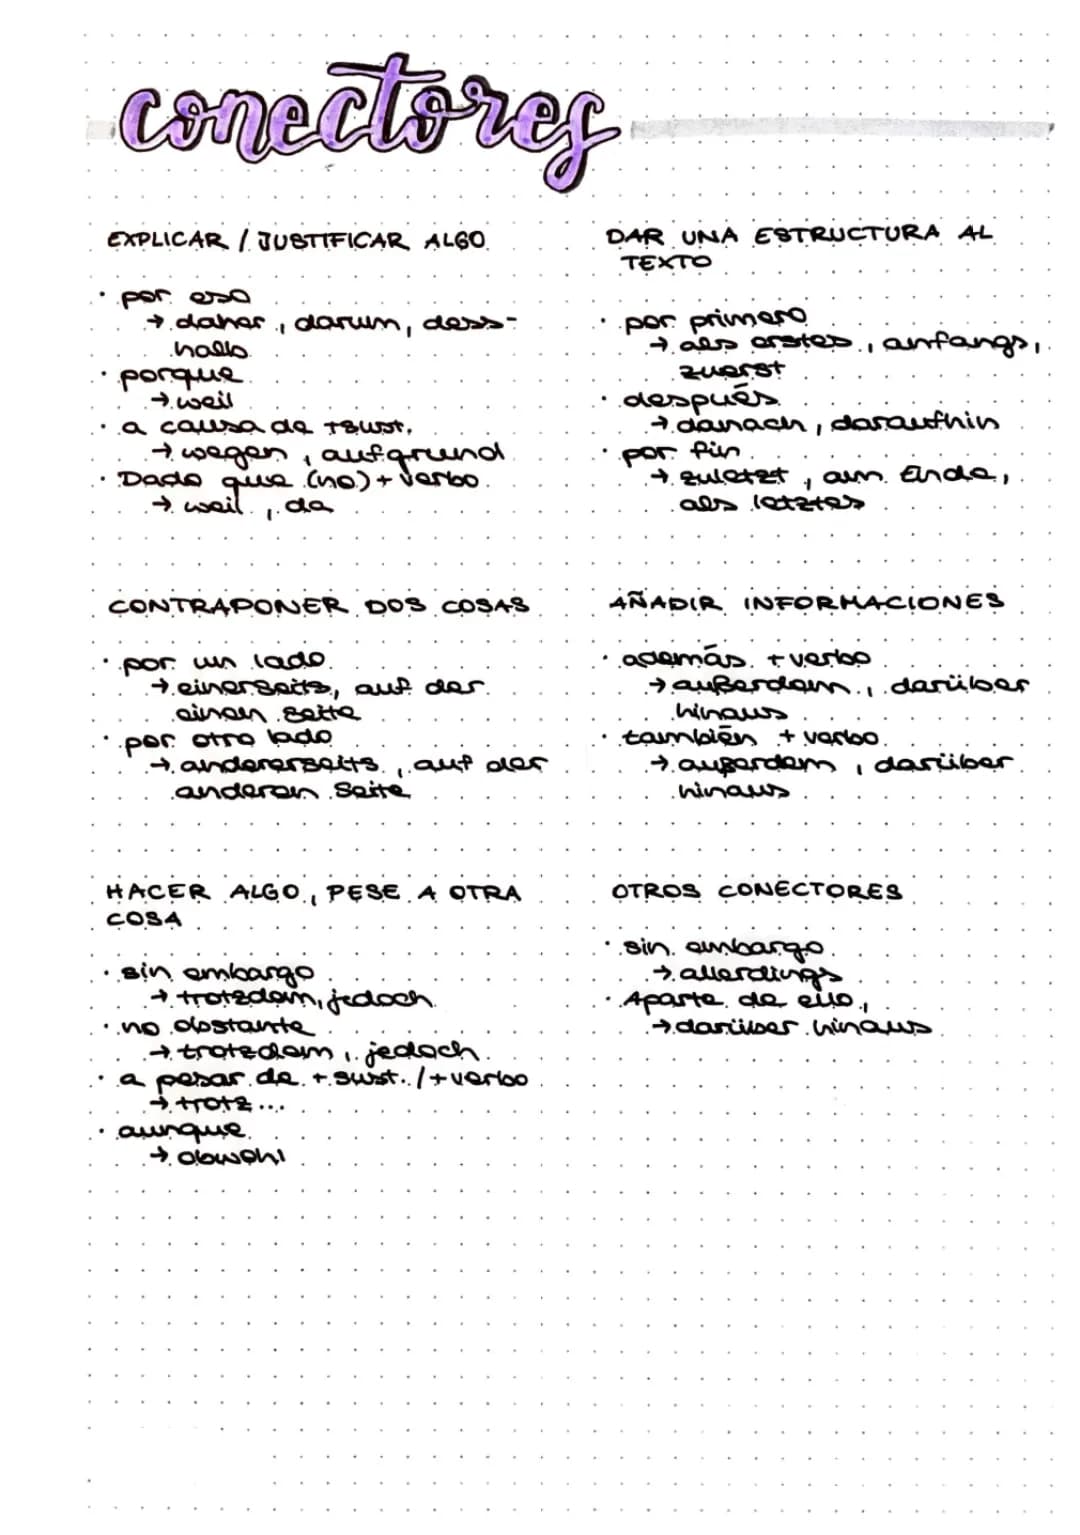 conectores
EXPLICAR / JUSTIFICAR ALGO
· por eso
→ daher, darum, dess-
halb
· porque
→ weil
· a causa de + sust.
→ wegen, aufgrund
· Dado que (no) + verbo
→ weil, da
DAR UNA ESTRUCTURA AL
TEXTO
· por primero
→ als erstes, anfangs,
zuerst
· después
→ danach, daraufhin
· por fin
→ zuletzt, am Ende,
als letztes
CONTRAPONER DOS COSAS
· por un lado
→ einerseits, auf der
einen Seite
· por otro lado
→ andererseits, auf der
anderen Seite
AÑADIR INFORMACIONES
· además + verbo
→ außerdem, darüber
hinaus
· también + verbo
→ außerdem, darüber
hinaus
HACER ALGO, PESE A OTRA
COSA
· sin embargo
→ trotzdem, jedoch
· no obstante
→ trotzdem, jedoch
· a pesar de + sust. / + verbo
→ trotz...
· aunque
→ obwohl
OTROS CONECTORES
· sin embargo
→ allerdings
· Aparte de ello,
→ darüber hinaus